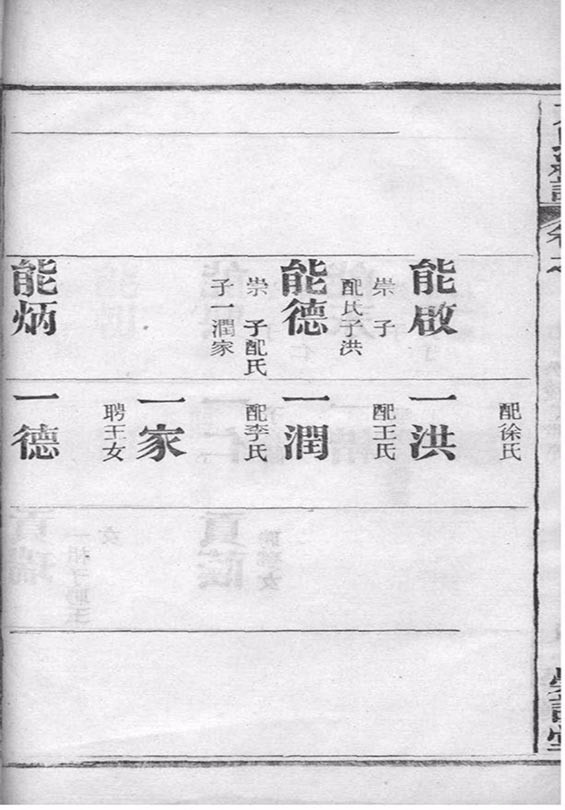 能啟
崇 子
配氏子洪
能德
崇 子配氏
子一潤家
能炳
配徐氏
一洪
配王氏
一潤
配李氏
一家
聘王女
一德